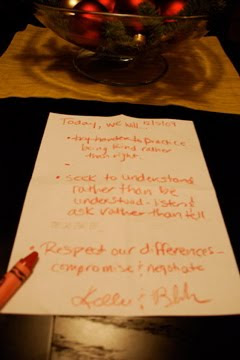 Today, we will...
• try harder to practice
being kind rather
than right.
• seek to understand
rather than be
understood - listen &
ask rather than tell
• Respect our differences -
compromise & negotiate
Kelly &